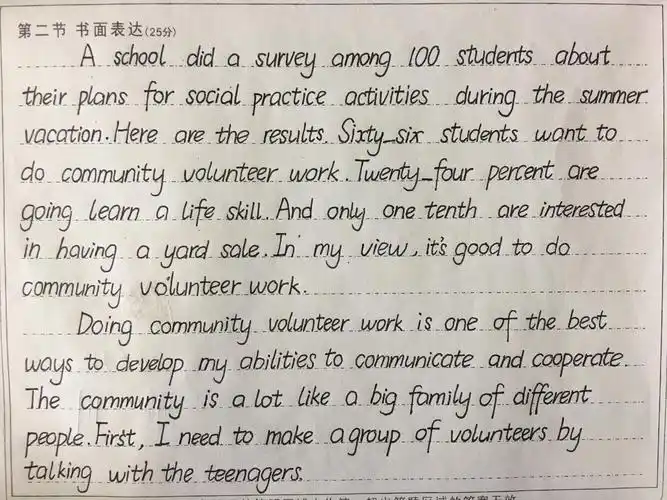 第二节 书面表达(25分)
A school did a survey among 100 students about
their plans for social practice activities during the summer
vacation. Here are the results. Sixty-six students want to
do community volunteer work. Twenty-four percent are
going learn a life skill. And only one tenth are interested
in having a yard sale. In my view, it's good to do
community volunteer work.
Doing community volunteer work is one of the best
ways to develop my abilities to communicate and cooperate.
The community is a lot like a big family of different
people. First, I need to make a group of volunteers by
talking with the teenagers.